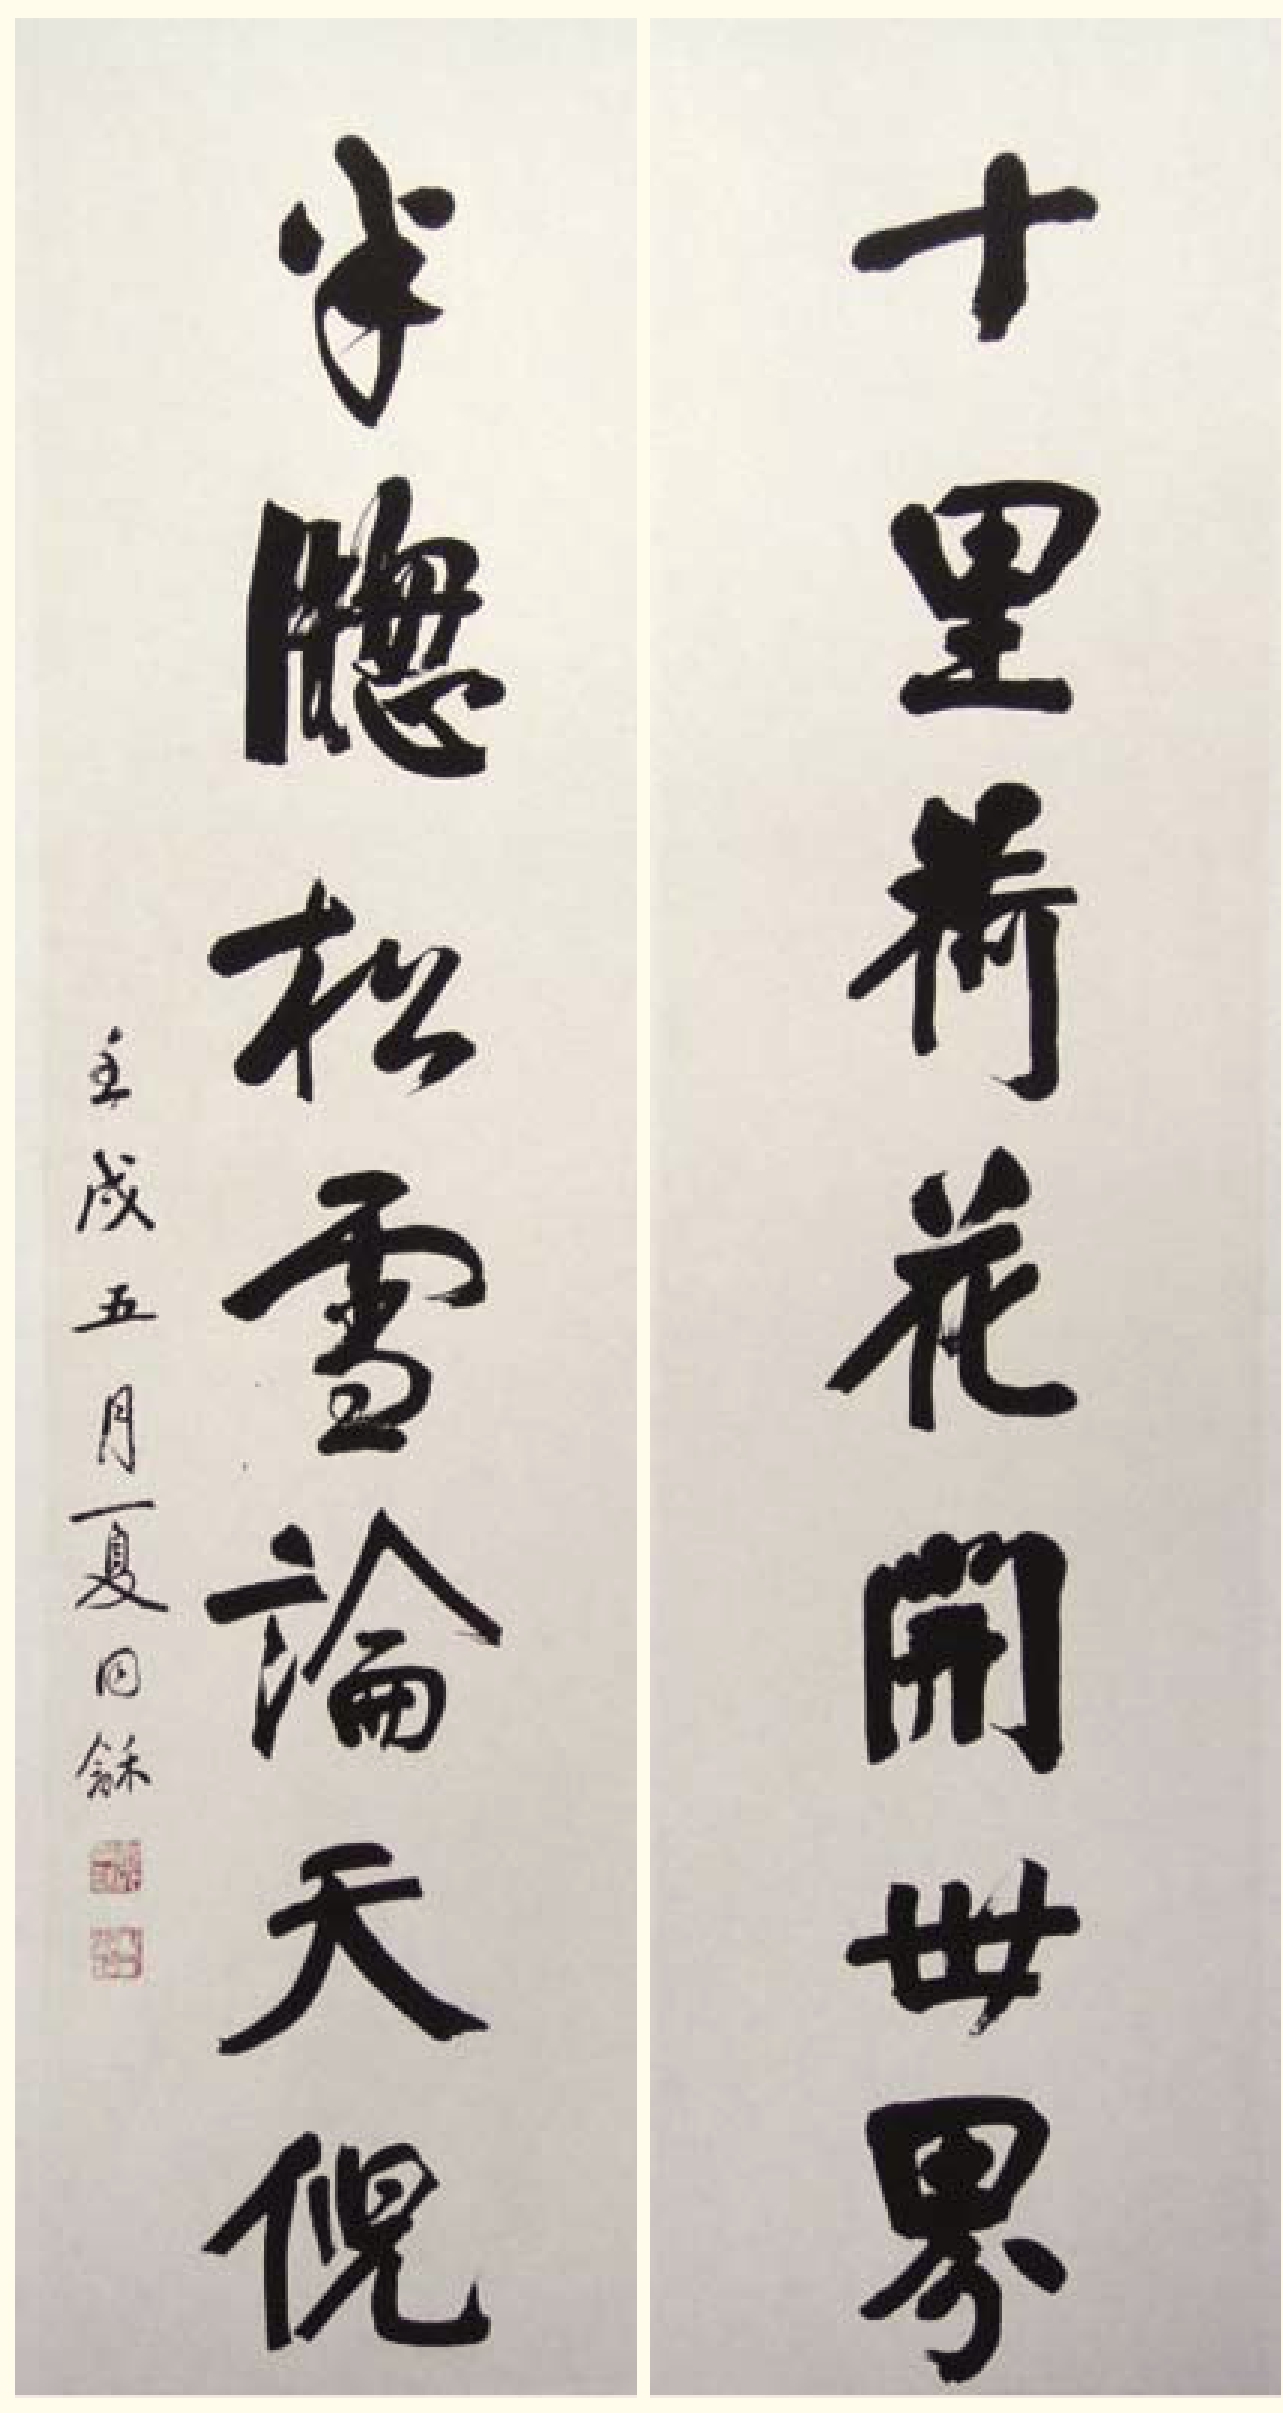 十里荷花開世界
半牕松雪論天倪
壬戌五月夏同龢